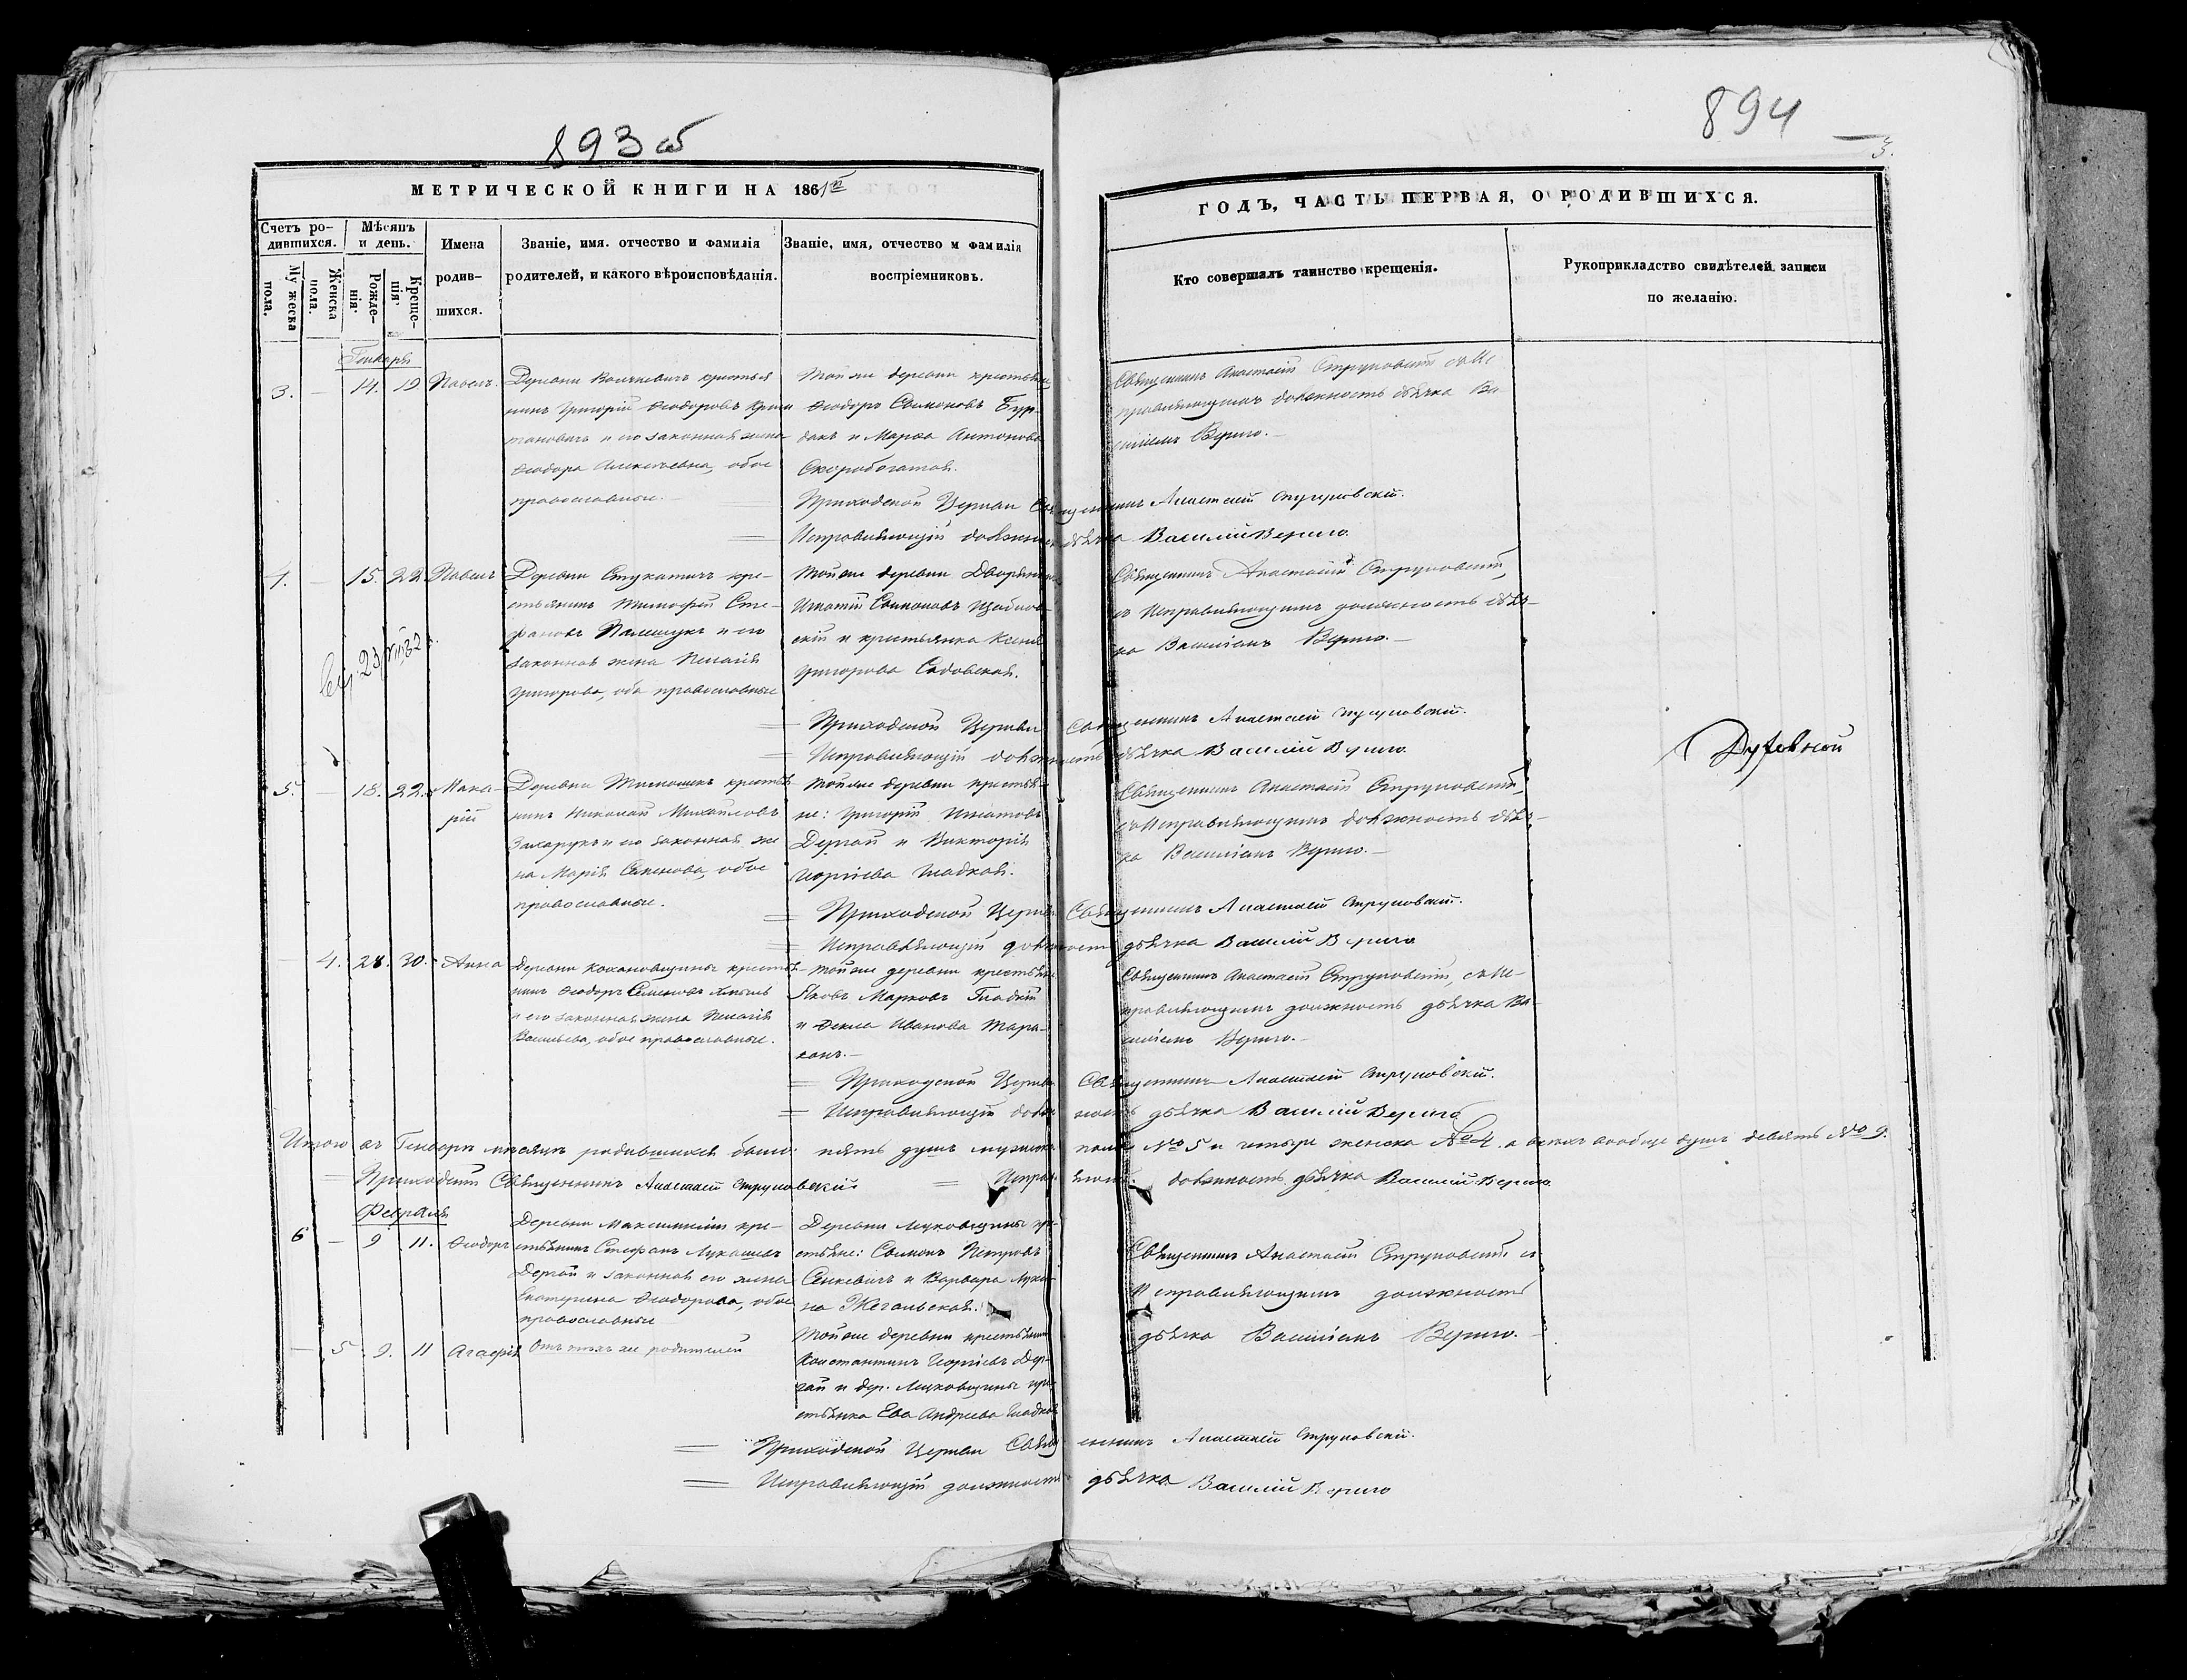 893 об
894
3.
МЕТРИЧЕСКОЙ КНИГИ НА 1861
ГОДЪ, ЧАСТЬ ПЕРВАЯ, О РОДИВШИХСЯ.
Счетъ ро-
дившихся.
Мужеска
пола.
Женска
пола.
Мѣсяцъ
и день.
Рожде-
нія.
Креще-
нія.
Имена
родив-
шихся.
Званіе, имя. отчество и фамилія
родителей, и какого вѣроисповѣданія.
Званіе, имя, отчество и фамилія
воспріемниковъ.
Кто совершалъ таинство крещенія.
Рукоприкладство свидѣтелей записи
по желанію.
Генваря
3. — 14. 19 Павелъ.
Деревни крестья
нинъ Григорій Ѳеодоровъ
и его законная жена
Ѳеодора Алексѣевна, обое
православные.
Той же деревни крестьяне
Ѳеодоръ Симоновъ Бур-
дакъ и Марѳа Антонова
Скоробогатая.
Священникъ Анастасій Струковскій съ Ис
правляющимъ должность дьячка Ва
силіемъ Вериго.
Приходской Церкви Священникъ Анастасій Струковскій.
Исправляющій должность дьячка Василій Вериго
4. — 15. 22. Павелъ
Деревни кре-
стьянинъ Тимофей Сте-
фановъ Полещукъ и его
законная жена Пелагія
Григорова, оба православные
Той же деревни Дворянинъ
Игнатій Симоновъ
скій и крестьянка Ксенія
Григорова Садовская.
Священникъ Анастасій Струковскій,
съ Исправляющимъ должность дьяч-
ка Василіемъ Вериго.
Приходской Церкви Священникъ Анастасій Струковскій.
Исправляющій должность дьячка Василій Вериго
5. — 18. 22. Мака-
рій
Деревни крестья
нинъ Николай Михайловъ
Захарукъ и его законная же
на Марія Семенова, обое
православные.
Той же деревни крестья-
не: Григорій Игнатовъ
Дергай и Викторія
Георгіева Гладкая.
Священникъ Анастасій Струковскій,
съ Исправляющимъ должность дьяч-
ка Василіемъ Вериго.
Приходской Церкви Священникъ Анастасій Струковскій.
Исправляющій должность дьячка Василій Вериго
— 4. 28. 30. Анна
Деревни Кохановщины крестья-
нинъ Ѳеодоръ Семеновъ
и его законная жена Пелагія
Васильева, обое православные.
Той же деревни крестьяне
Яковъ Марковъ Гладкій
и Ѳекла Иванова Тара-
канъ.
Священникъ Анастасій Струковскій, съ Ис-
правляющимъ должность дьячка Ва-
силіемъ Вериго.
Приходской Церкви Священникъ Анастасій Струковскій.
Исправляющій должность дьячка Василій Вериго
Итого въ Генварѣ мѣсяцѣ родившихся было: пять душъ мужеска пола № 5 и четыре женска № 4. а всехъ вообще душъ девять № 9.
Приходскій Священникъ Анастасій Струковскій. Исправляющ. должность дьячка Василій Вериго.
Февраля
6 — 9 11. Ѳеодоръ
Деревни кре-
стьянинъ Стефанъ Лукашевъ
Дергай и законная его жена
Екатерина Ѳеодорова, обое
православные
Деревни Луковщины кре-
стьяне: Симонъ Петровъ
Сенкевичъ и Варвара Луки-
на Жегальская.
Священникъ Анастасій Струковскій съ
Исправляющимъ должность
дьячка Василіемъ Вериго.
— 5 9. 11 Агафія
Отъ техъ же родителей
Той же деревни крестьянинъ
Константинъ Георгіевъ Дер-
гай и дер. Луковщины кре-
стьянка Ева Андреева Гладкая
Приходской Церкви Священникъ Анастасій Струковскій.
Исправляющій должность дьячка Василій Вериго